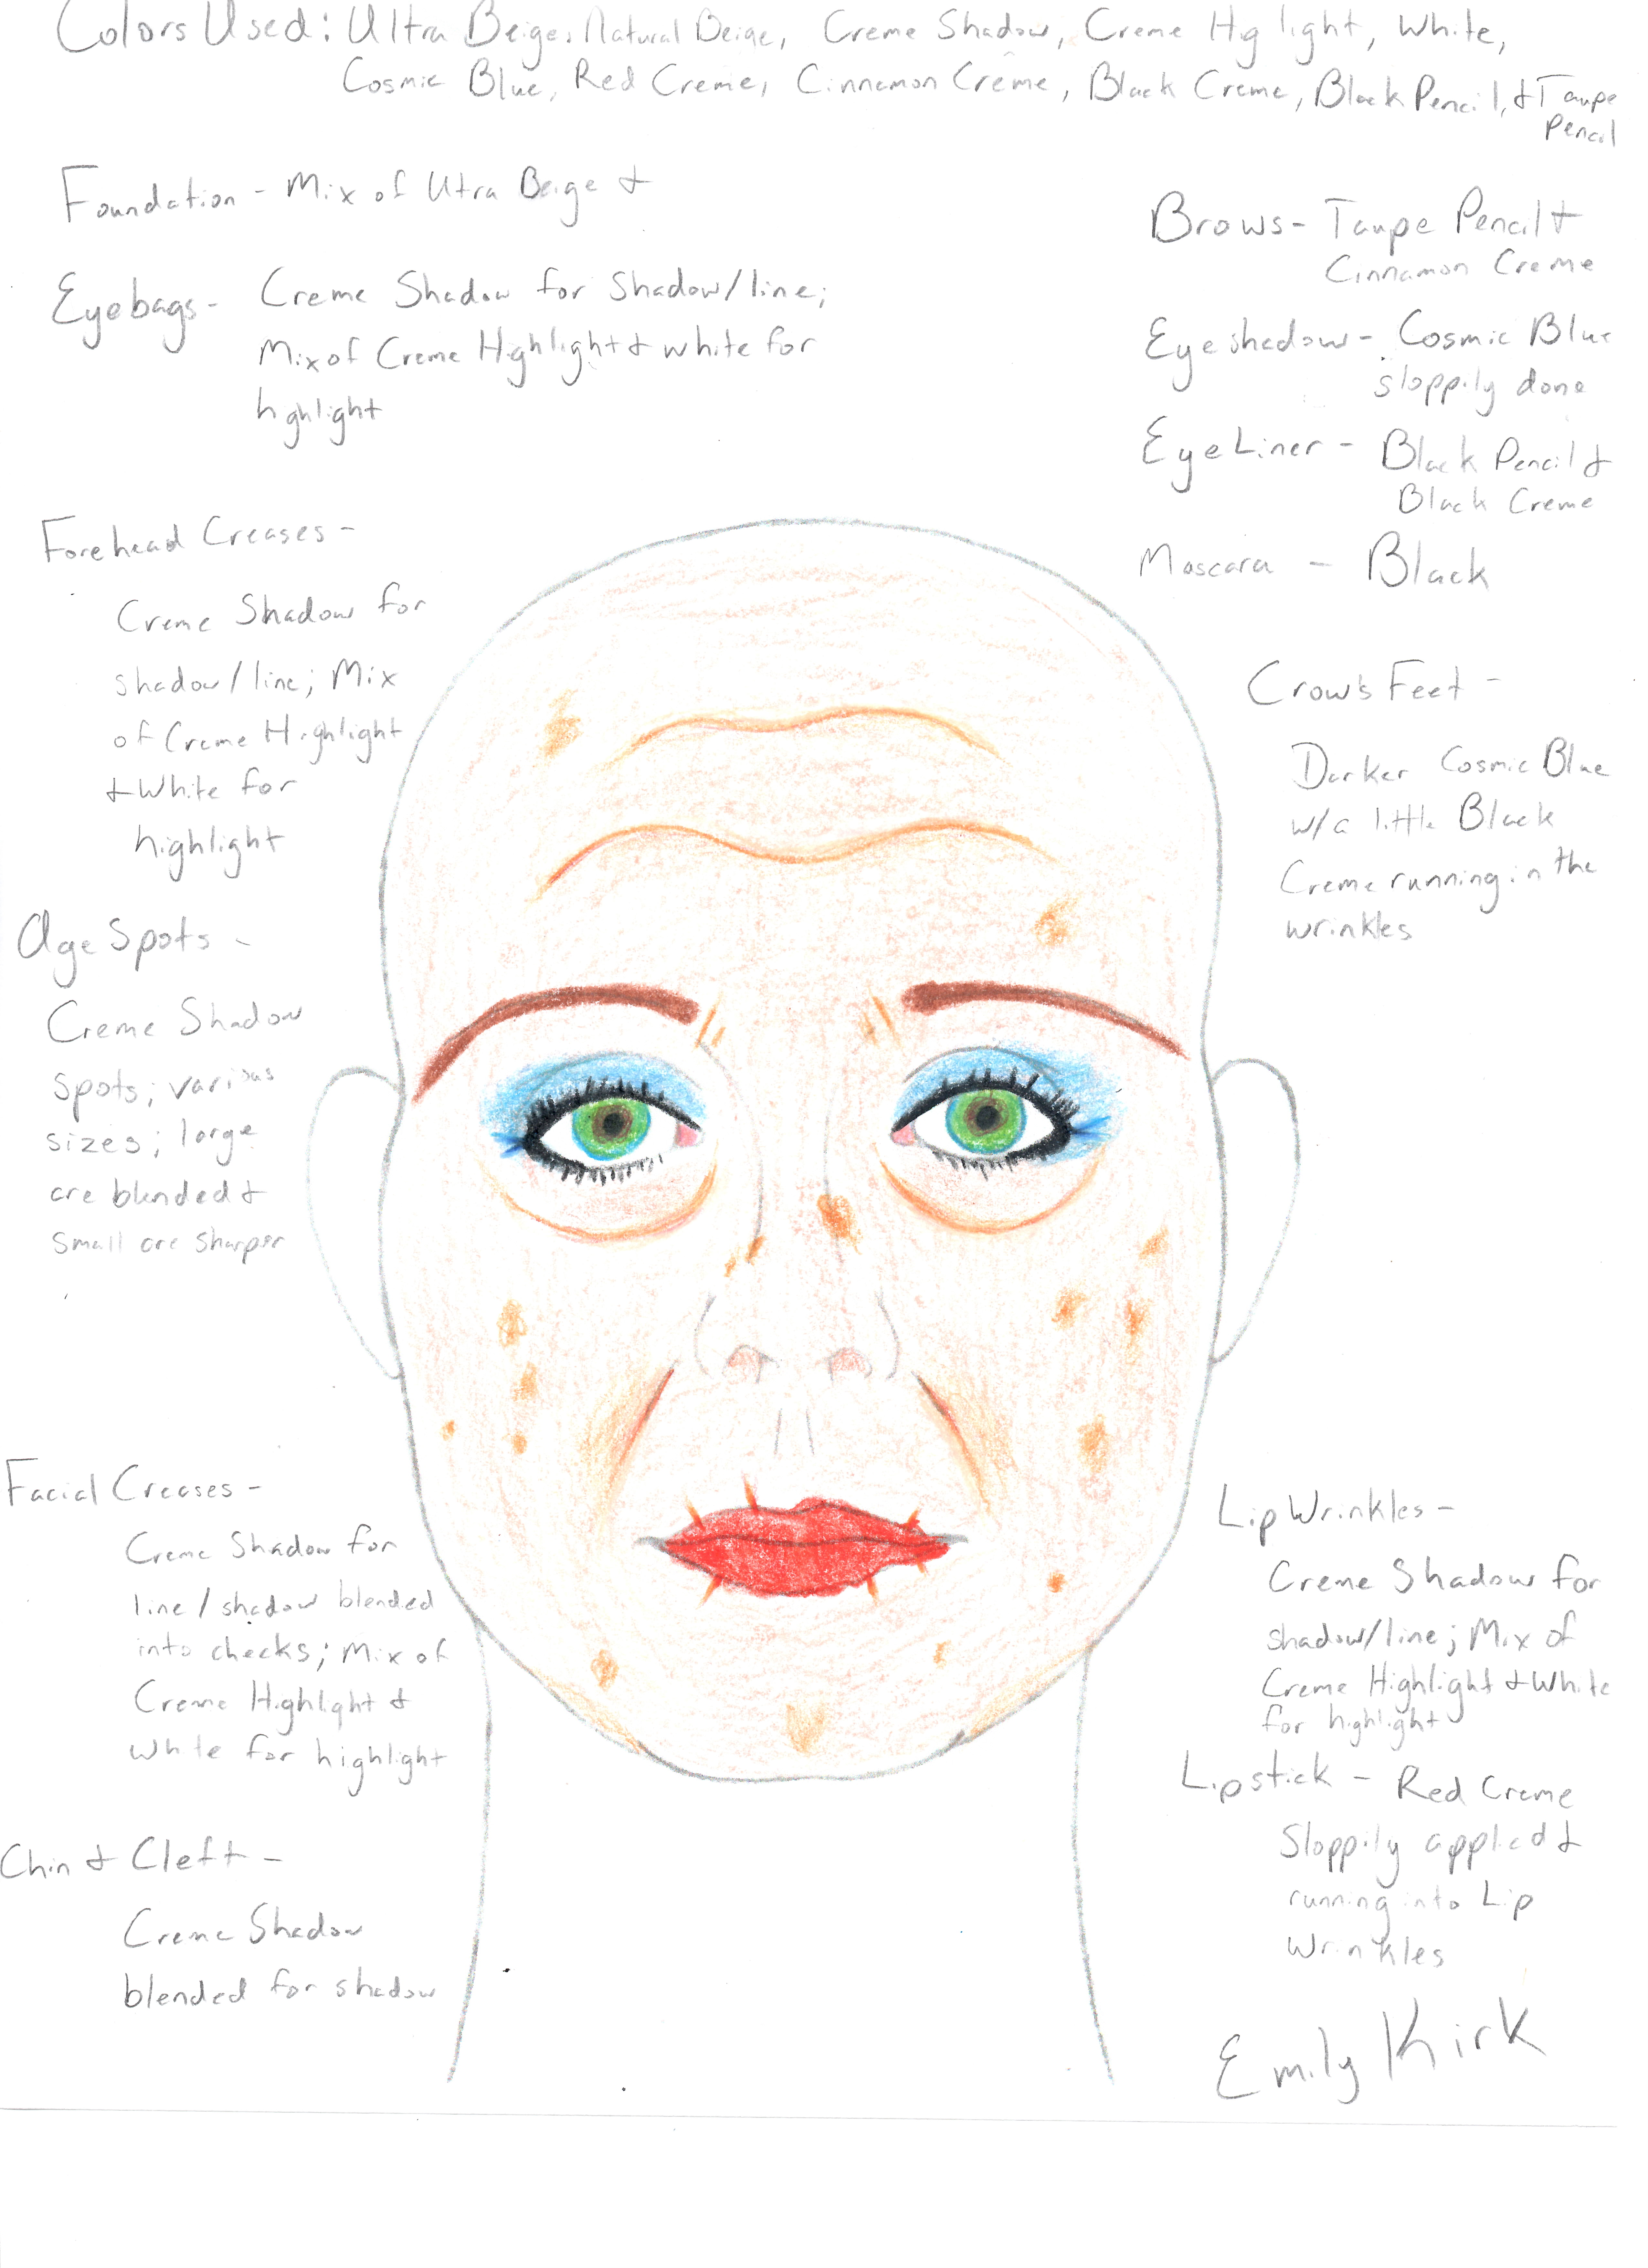 Colors Used: Ultra Beige, Natural Beige, Creme Shadow, Creme Highlight, White,
Cosmic Blue, Red Creme, Cinnamon Creme, Black Creme, Black Pencil, & Taupe
Pencil
Foundation - Mix of Utra Beige &
Eyebags - Creme Shadow for Shadow/line;
Mix of Creme Highlight & White for
highlight
Forehead Creases -
Creme Shadow for
shadow/line; Mix
of Creme Highlight
& White for
highlight
Age Spots -
Creme Shadow
spots; various
sizes; large
are blended &
small are sharper
Facial Creases -
Creme Shadow for
line/shadow blended
into cheeks; Mix of
Creme Highlight &
White for highlight
Chin & Cleft -
Creme Shadow
blended for shadow
Brows - Taupe Pencil &
Cinnamon Creme
Eyeshadow - Cosmic Blue
sloppily done
Eye Liner - Black Pencil &
Black Creme
Mascara - Black
Crow's Feet -
Darker Cosmic Blue
w/a little Black
Creme running in the
wrinkles
Lip Wrinkles -
Creme Shadow for
shadow/line; Mix of
Creme Highlight & White
for highlight
Lipstick - Red Creme
Sloppily applied &
running into Lip
Wrinkles
Emily Kirk